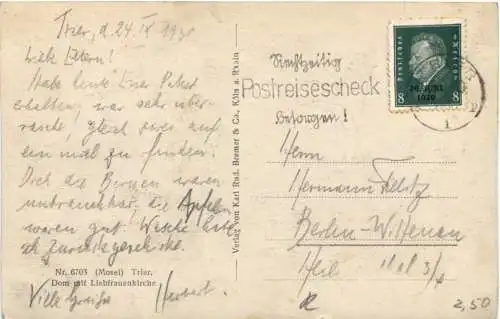 Trier, d. 24. IX 1930
Liebe Eltern!
Habe heute Euer Paket
erhalten, war sehr über-
rascht! Gleich zwei auf
ein mal zu finden.
Doch die Birnen waren
unbrauchbar, die Äpfel
waren gut! Wäsche
zurückgeschickt.
Nr. 6703 (Mosel) Trier.
Dom mit Liebfrauenkirche
Viele Grüße Herbert.
Verlag von Karl Rud. Bremer & Co., Köln a. Rhein
Rechtzeitig
Postreisescheck
besorgen!
Deutsches Reich
30. JUNI
1930
8 8
Herrn
Hermann
Berlin-Wittenau
2,50